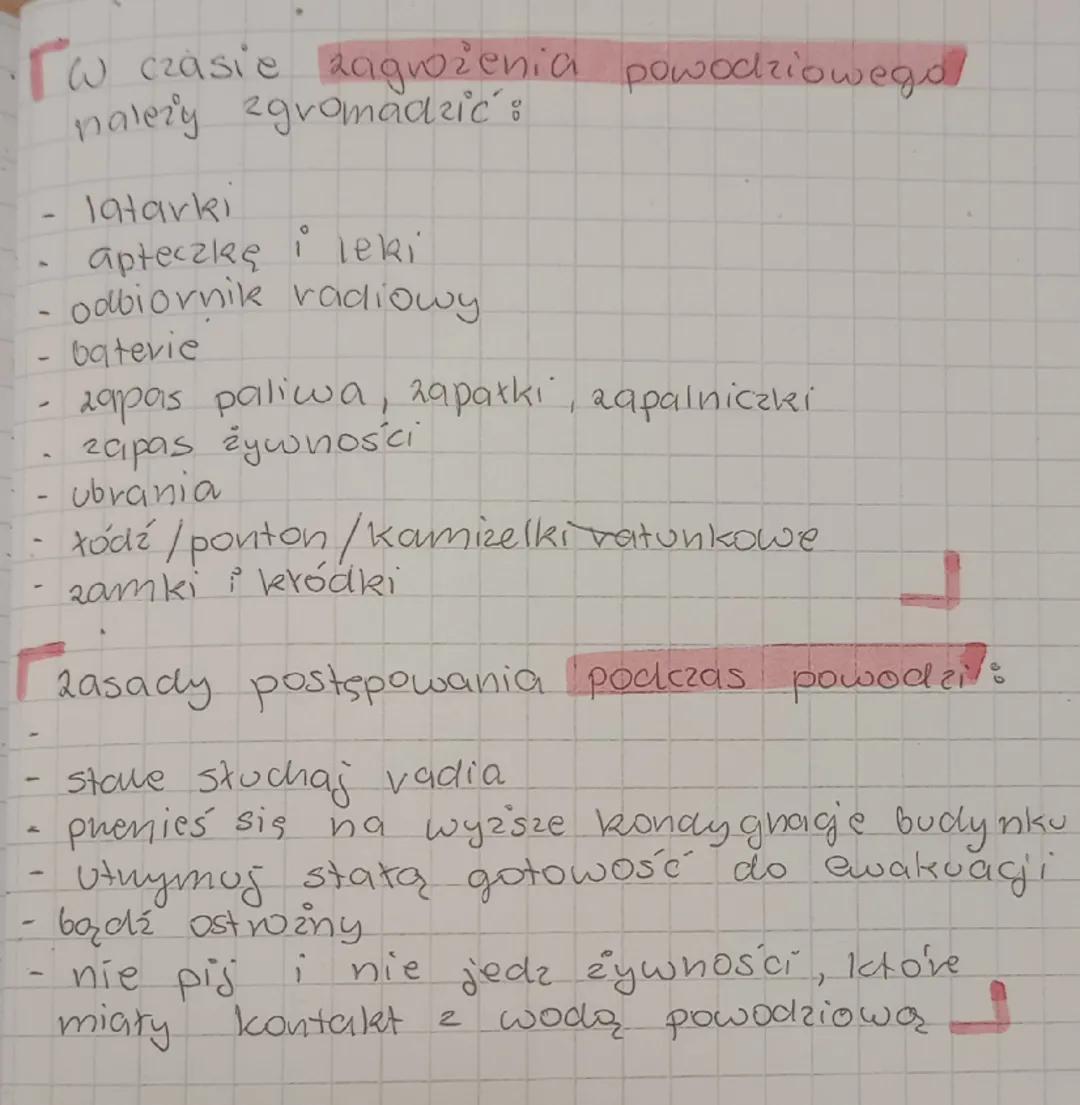 W czasie zagrożenia powodziowego
należy zgromadzić:
- latarki
- apteczkę i leki
- odbiornik radiowy
- baterie
- zapas paliwa, zapałki, zapalniczki
- zapas żywności
- ubrania
- łódź/ponton/kamizelki ratunkowe
- zamki i kłódki
zasady postępowania podczas powodzi:
-
- stale słuchaj radia
- przenieś się na wyższe kondygnacje budynku
- utrzymuj stałą gotowość do ewakuacji
- bądź ostrożny
- nie pij i nie jedz żywności, które
miały kontakt z wodą powodziową